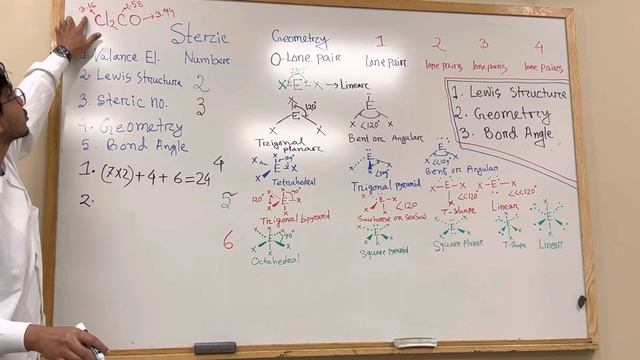 3.16 Cl₂CO 2.58 → 3.44
1. Valance El.
2. Lewis Structure
3. Steric no.
4. Geometry
5. Bond Angle
1. (7x2)+4+6=24
2.
Sterzic Geometry
Number 0-Lone pair 1 Lone pair 2 lone pairs 3 lone pairs 4 lone pairs
2 X-E-X → Linear 180°
3 E X X X 120° E X X <120°
Trigonal planare Bent or Angulare
4 X E X X X 109° E X X X E X X <109°
Tetrahedral Trigonal pyramid Bent or Angular
120° X E X X 90° X-E-X <120 X-E-X X-E-X <<<120°
Trigonal bipyramid Sawhorse or seasaw T-shape Linear
6 X E X 90° X E X X E X X E X X E X
Octahedral Square pyramid Square planar T-shape Linear
1. Lewis Structure
2. Geometry
3. Bond Angle